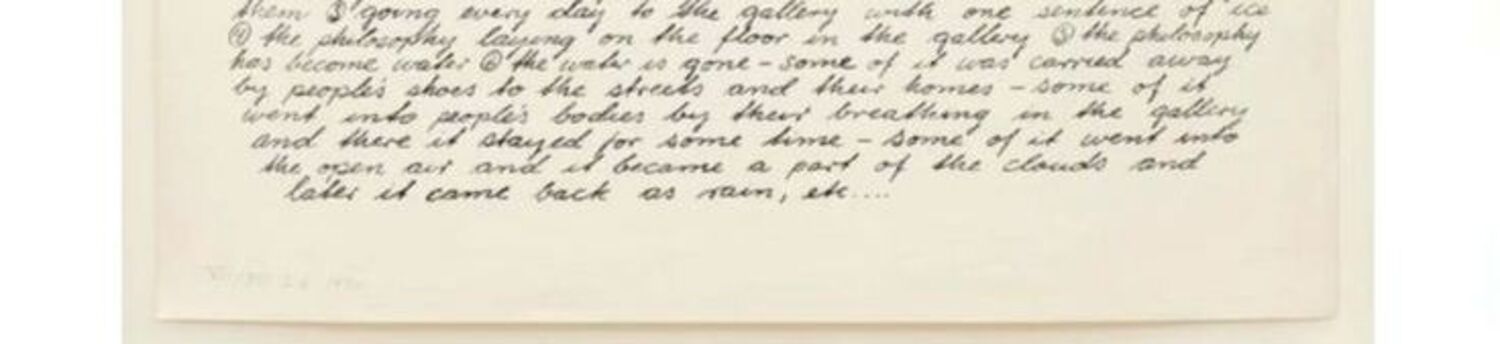 them ③ going every day to the gallery with one sentence of ice
④ the philosophy laying on the floor in the gallery ⑤ the philosophy
has become water ⑥ the water is gone – some of it was carried away
by people's shoes to the streets and their homes – some of it
went into people's bodies by their breathing in the gallery
and there it stayed for some time – some of it went into
the open air and it became a part of the clouds and
later it came back as rain, etc....